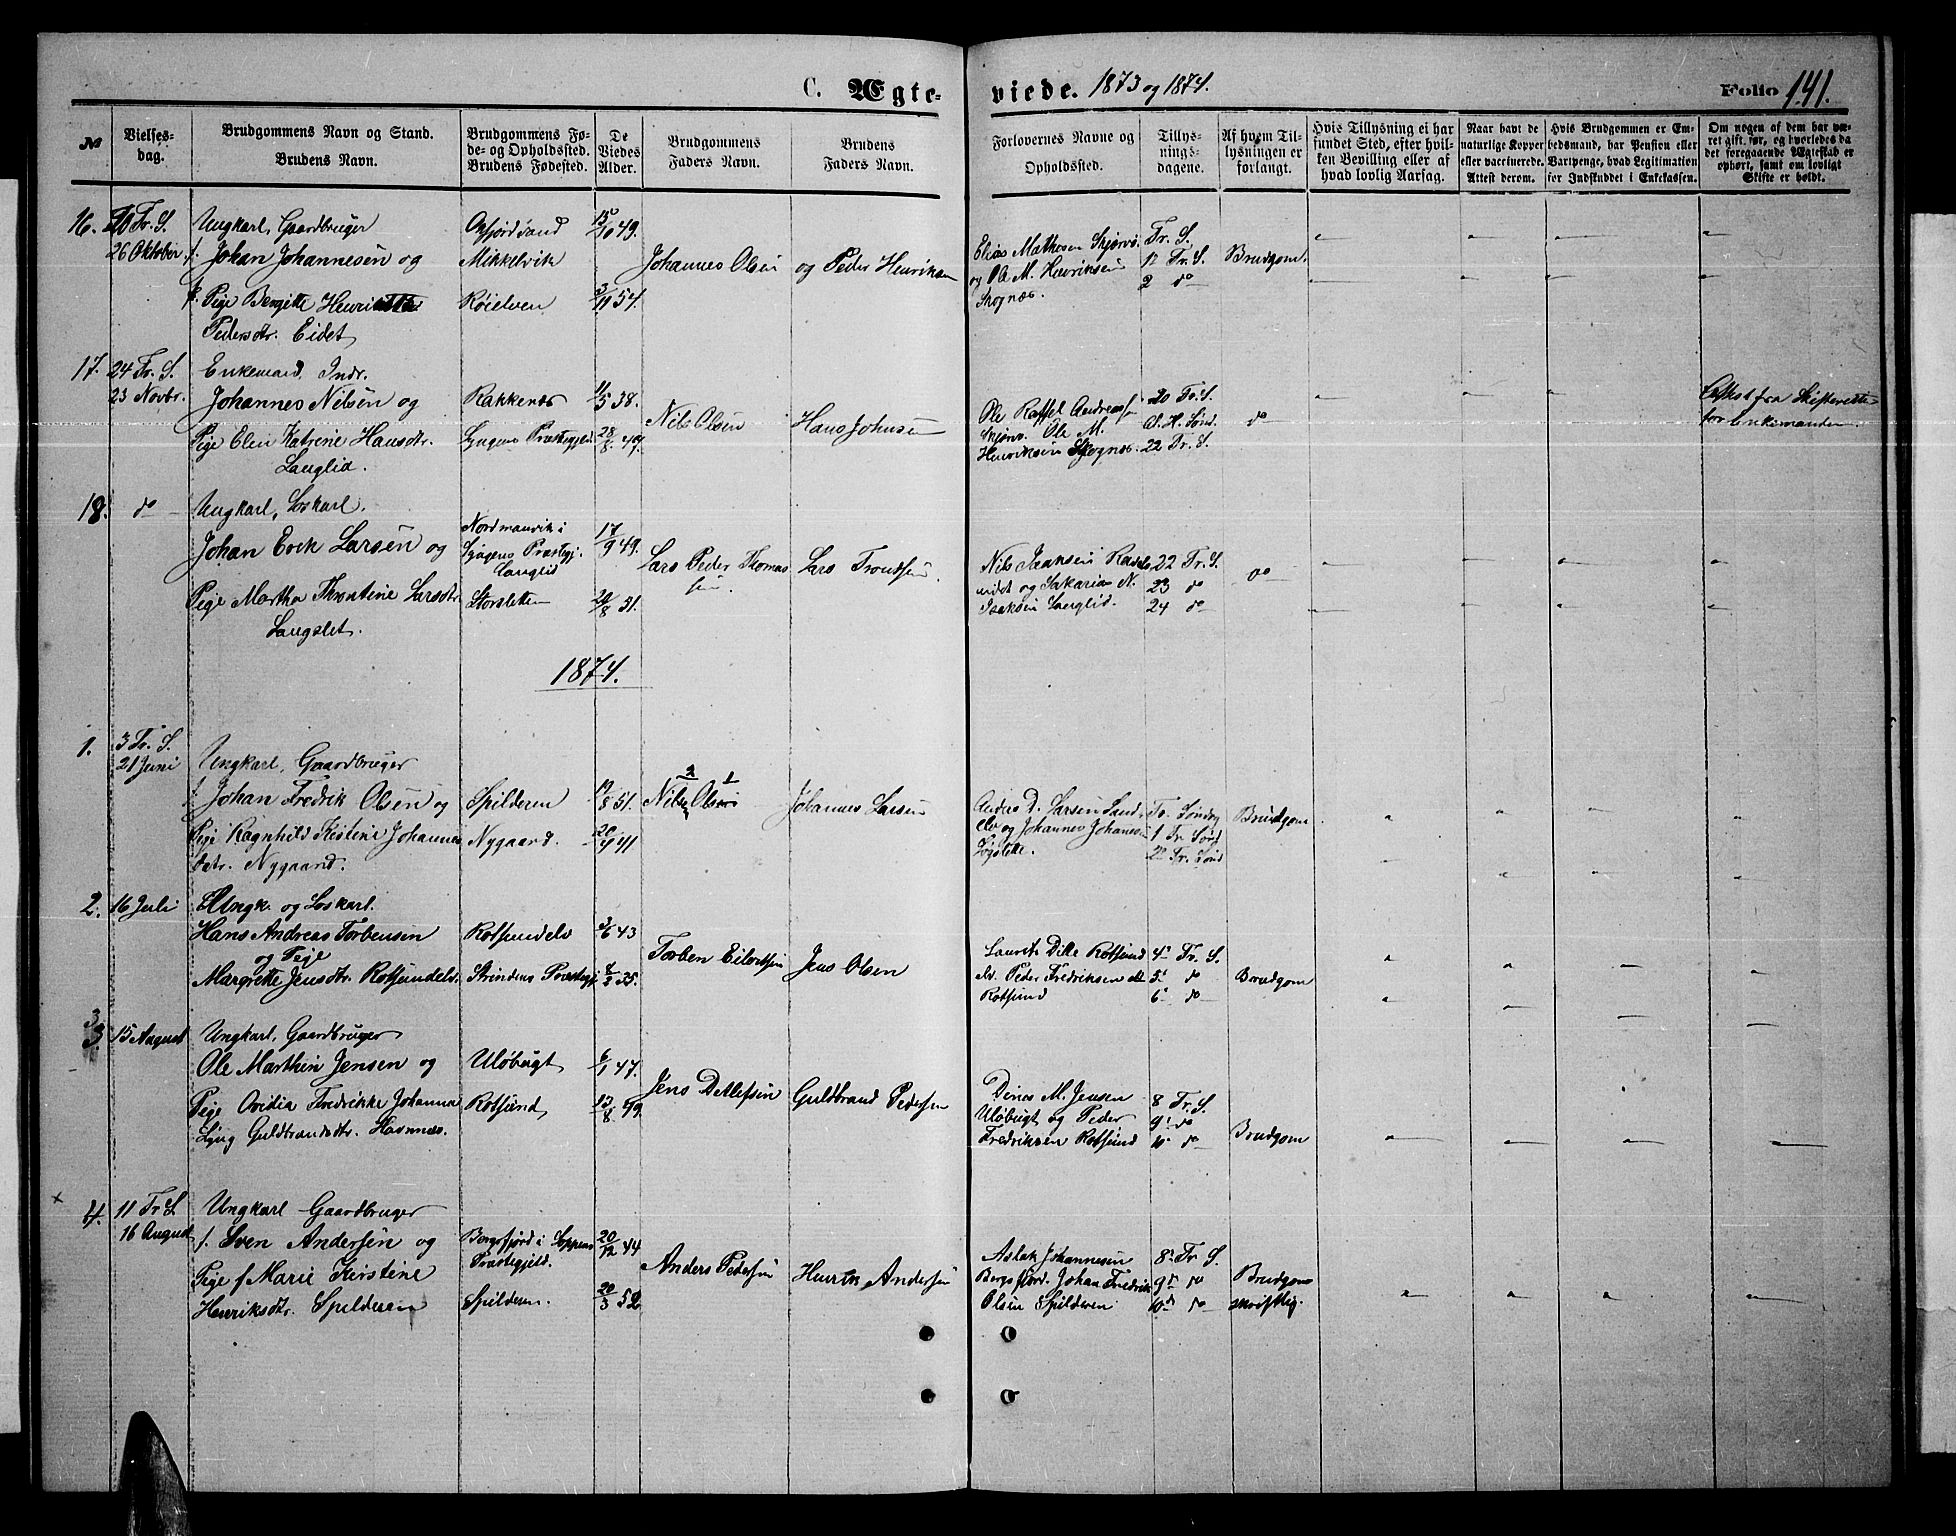 C. Ægte-
viede. 1873 og 1874.
Folio 141.
No
Vielses-
dag.
Brudgommens Navn og Stand.
Brudens Navn.
Brudgommens Fø-
de- og Opholdssted.
Brudens Fødested.
De
Viedes
Alder.
Brudgommens
Faders Navn.
Brudens
Faders Navn.
Forlovernes Navne og
Opholdssted.
Tillys-
nings-
dagene.
Af hvem Til-
lysningen er
forlangt.
Hvis Tillysning ei har
fundet Sted, efter hvil-
ken Bevilling eller af
hvad lovlig Aarsag.
Naar havt de
naturlige Kopper
eller vaccinerede.
Attest derom.
Hvis Brudgommen er Em-
bedsmand, har Pension eller
Vartpenge, hvad Legitimation
for Indskuddet i Enkekassen.
Om nogen af dem har væ-
ret gift før, og hvorledes da
det foregaaende Ægteskab er
ophørt, samt om lovligt
Skifte er holdt.
16. 20 Tr. S.
26 Oktober
Ungkarl, Gaardbruger
f. Johan Johannesen og
Pige Bergitte
Pedersdtr. Eidet
Oxfjordsand
Mikkelvik
Røielven
13/10 49.
3/11 54.
Johannes Olsen
og Peder Henriksen
Elias Mathesen Skjervø.
og Ole M. Henriksen
Skognæs.
Tr. S.
1 Tr. S.
2 do
Brudgom.
17. 24 Tr. S.
23 Novbr.
Enkemand, Indr.
Johannes Nilsen og
Pige Elen Katrine Hansdtr.
Langlid.
Rakkenæs
Lyngens Præstegjeld
11/5 38.
28/8 49.
Nils Olsen
Hans Johnsen
Ole Andreas
Skjervø. Ole M.
Henriksen Skognæs.
20 Tr. S.
22 Tr. S.
do
Attest fra Skifterette
for Enkemanden
18. do
Ungkarl, Loskarl.
Johan Erik Larsen og
Pige Martha Threntine Larsdtr.
Langslet.
Nordmanvik i
Lyngens Præstegj.
Langlid
Storsletten
17/9 49.
20/8 51.
Lars Peder Thomas
sen.
Lars Trondsen.
Nils Isaksen
og Sakarias N.
Isaksen Langlid.
22 Tr. S.
23 do
24 do
do
1874.
1. 3 Tr. S.
21 Juni
Ungkarl, Gaardbruger
f. Johan Fredrik Olsen og
Pige Ragnhild Kistine Johannes
datr. Nygaard.
Spilderen
Nygaard.
19/8 51.
20/4 41
2 1
Nils Olsen
Johannes Larsen
Anders D. Larsen Sand
elv og Johannes Johanes
1 Tr. Sønd
2 Tr. Sønd
Brudgom
2. 16 Juli
Ungk. og Loskarl.
Hans Andreas Torbensen
og Pige
Margrette Jensdtr. Rotsundelv.
Rotsundelv
Strindens Præstegj
3/6 43
8/3 35.
Torben Eilertsen
Jens Olsen
Laurits Dille Rotsund
elv. Peder Fredriksen
Rotsund
4 Tr. S.
5 do
6 do
Brudgom
3. 15 August
Ungkarl, Gaardbruger
Ole Marthin Jensen og
Pige Ovidia Fredrikke Johanna
Lyng Guldbrandsdtr. Havnnæs.
Uløbugt
Rotsund,
6/1 47.
13/8 49.
Jens Detlefsen
Guldbrand Pedersen
Dines M. Jensen
Uløbugt og Peder
Fredriksen Rotsund
8 Tr. S.
9 do
10 do
Brudgom
4. 11 Tr. S.
16 August
Ungkarl Gaardbruger
f. Sven Andersen og
Pige f Marie Kirstine
Henriksdtr. Spilderen
Bergsfjord i Loppens
Præstegjeld.
Spilderen.
20/12 44
20/3 52
Anders Pedersen
Henrik Andersen
Aslak Johannesen
Bergsfjord. Johan Fredrik
Olsen Spilderen
8 Tr. S.
9 do
10 do
Brudgom
skriftlig.